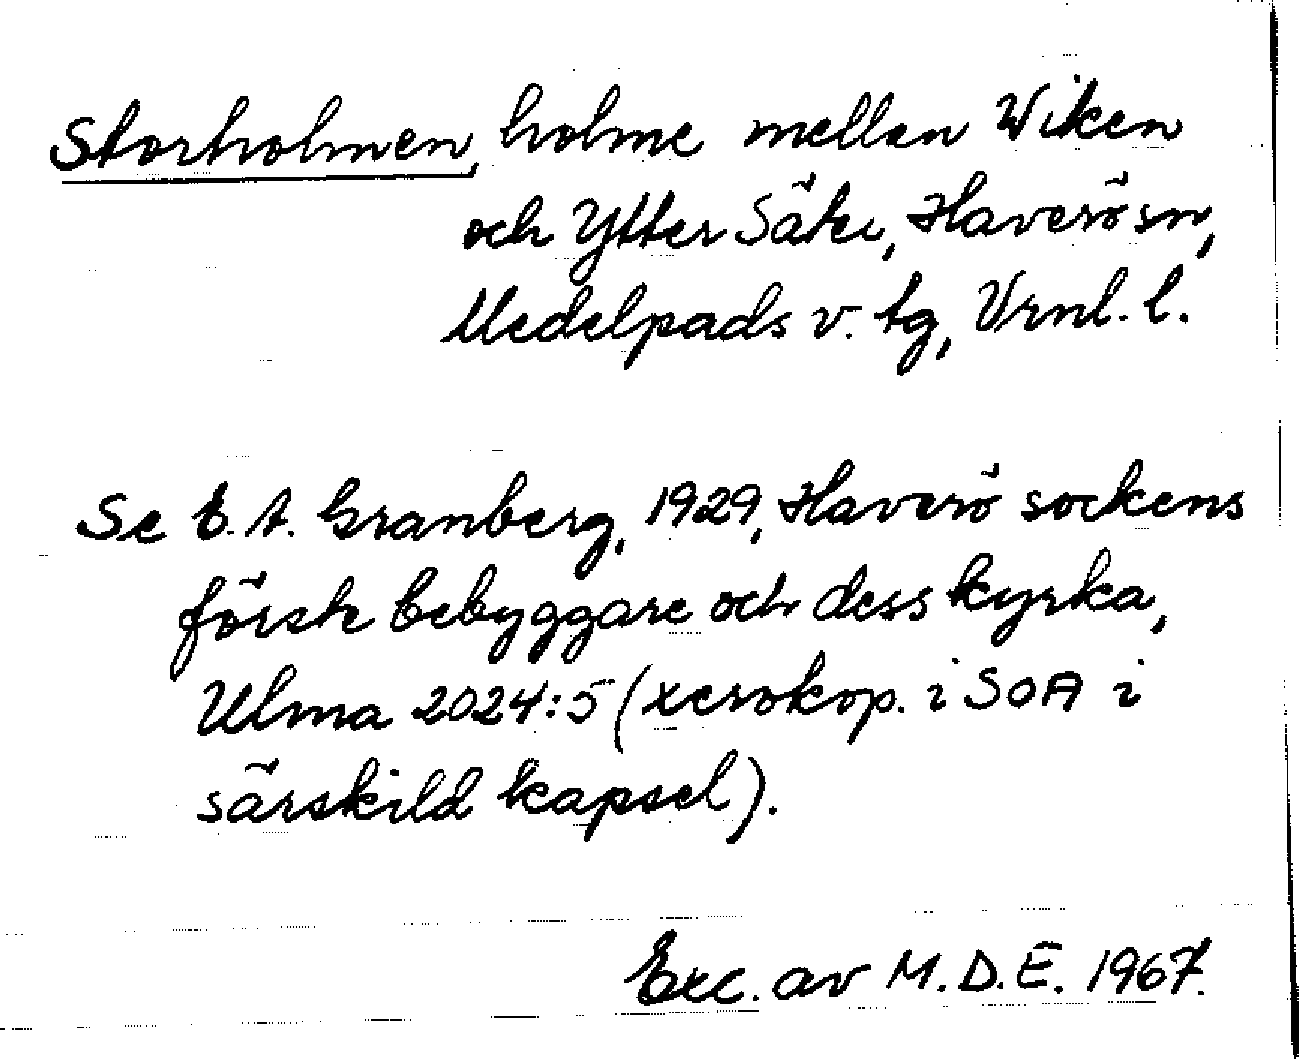 Storholmen, holme mellan Wiken
och Ytter Säter, Haverö sn,
Medelpads v. tg, Vrnl. l.
Se E. A. Granberg, 1929, Haverö sockens
förste bebyggare och dess kyrka,
Ulma 2024:5 (xerokop. i SOA i
särskild kapsel).
Exc. av M.D.E. 1967.